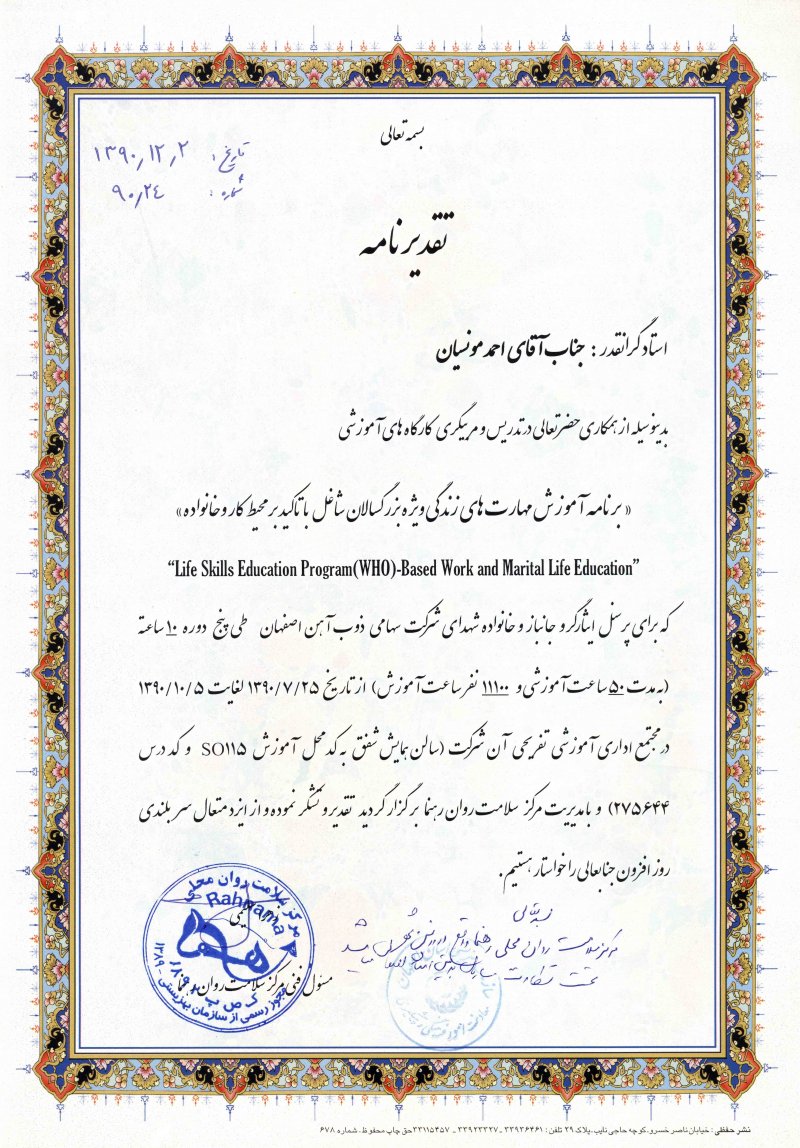 بسمه تعالی
تاریخ: ۱۳۹۰٫۱۲٫۲
شماره: ۹۰٫۲۴
تقدیرنامه
استاد گرانقدر : جناب آقای احمد مونسیان
بدینوسیله از همکاری حضرتعالی در تدریس و مربیگری کارگاه های آموزشی
«برنامه آموزش مهارت های زندگی ویژه بزرگسالان شاغل با تاکید بر محیط کار و خانواده»
“Life Skills Education Program(WHO)-Based Work and Marital Life Education”
که برای پرسنل ایثارگر و جانباز و خانواده شهدای شرکت سهامی ذوب آهن اصفهان طی پنج دوره ۱۰ ساعته
(به مدت ۵۰ ساعت آموزشی و ۱۱۱۰۰ نفر ساعت آموزش) از تاریخ ۱۳۹۰/۷/۲۵ لغایت ۱۳۹۰/۱۰/۵
در مجتمع اداری آموزشی تفریحی آن شرکت (سالن همایش شفق به کد محل آموزش SO۱۱۵ و کد درس
۲۷۵۶۴۴) و با مدیریت مرکز سلامت روان رهنما برگزار گردید تقدیر و تشکر نموده و از ایزد متعال سر بلندی
روز افزون جنابعالی را خواستار هستیم.
مرکز سلامت روان محلی
Rahnama
رهنما
مجوز رسمی از سازمان بهزیستی
مسئول فنی مرکز سلامت روان رهنما
مرکز سلامت روان محلی رهنما
نشر حفظی : خیابان ناصر خسرو، کوچه حاجی نایب، پلاک ۲۹ تلفن : ۳۳۹۳۶۴۶۱ ـ ۳۳۹۲۳۳۲۷ ـ ۳۳۱۱۵۴۵۷ حق چاپ محفوظ، شماره ۶۷۸